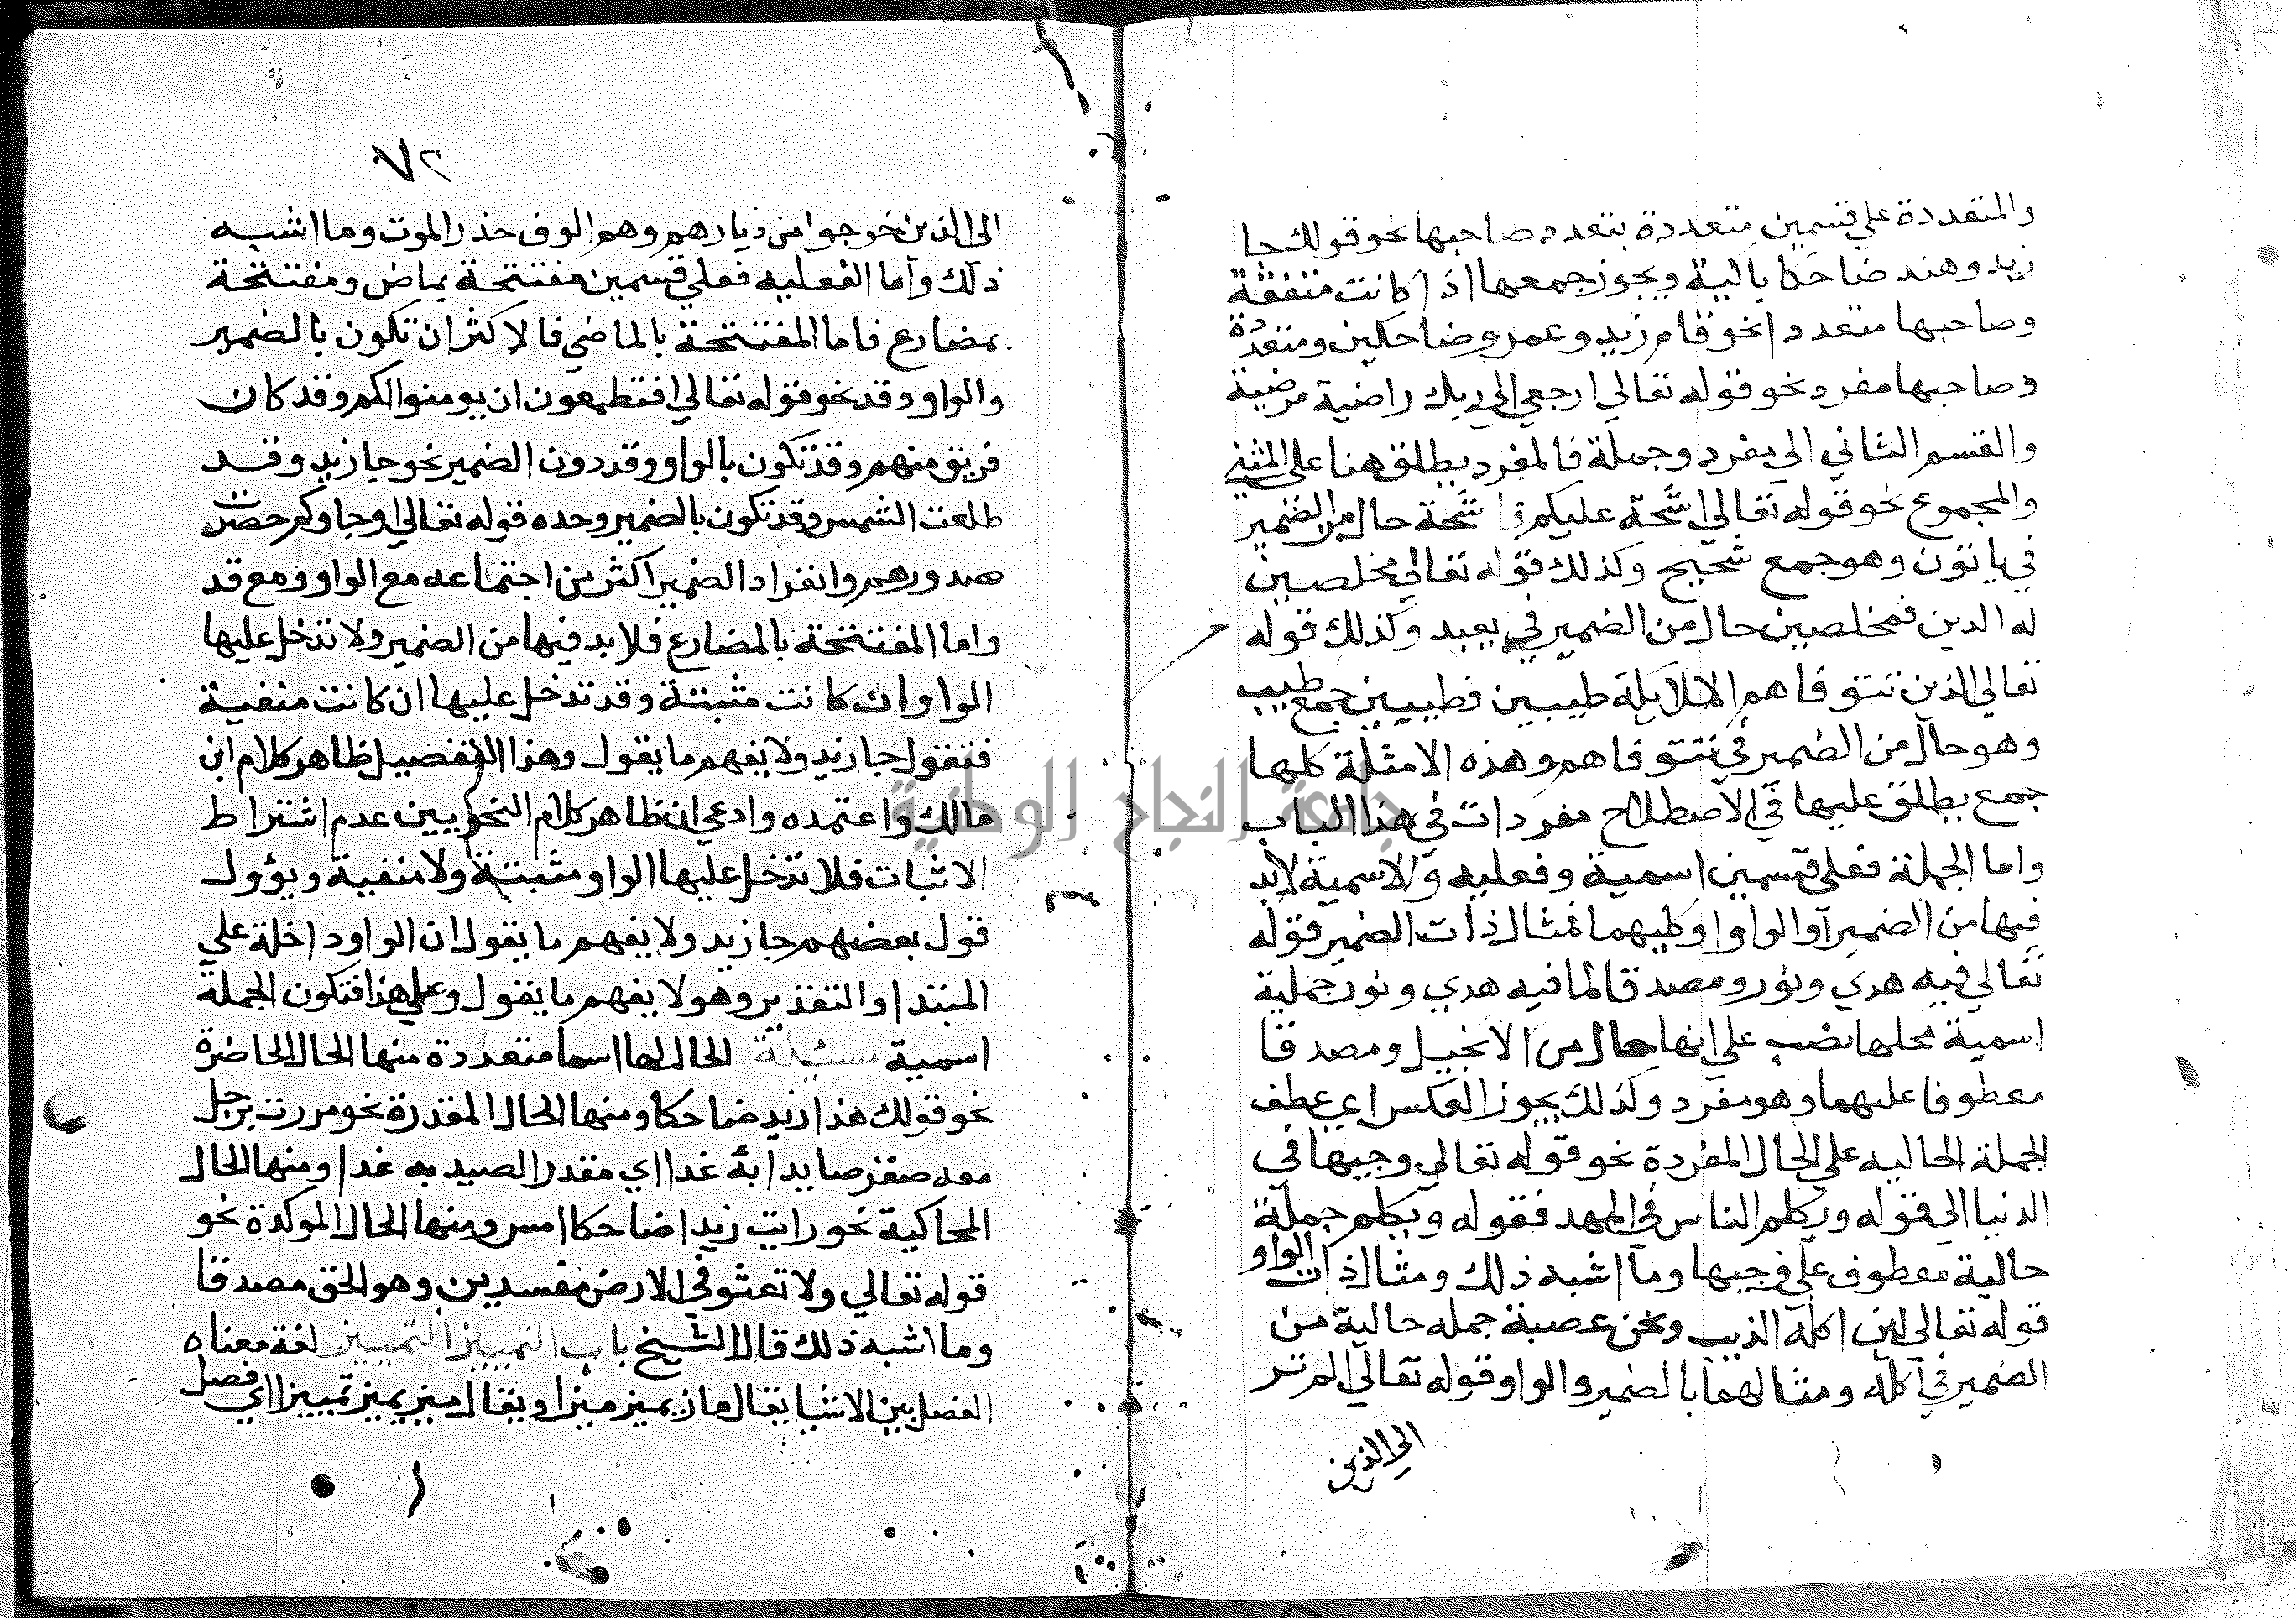 والمتعددة علي قسمين متعددة بتعدد صاحبها نحو قولك جا
زيد وهند ضاحكا باكية ويجوز جمعها اذا كانت متفقة
وصاحبها متعددا نحو قام زيد وعمرو ضاحكين ومتعددة
وصاحبها مفرد نحو قوله تعالي ارجعي الي ربك راضية مرضية
والقسم الثاني الي مفرد وجملة فالمفرد يطلق هنا علي المثني
والمجموع نحو قوله تعالي اشحة عليكم فاشحة حال من الضمير
في ياتون وهو جمع شحيح وكذلك قوله تعالي مخلصين
له الدين فمخلصين حال من الضمير في يعبد وكذلك قوله
تعالي الذين تتوفاهم الملايكة طيبين فطيبين جمع طيب
وهو حال من الضمير في تتوفاهم وهذه الامثلة كلها
جمع يطلق عليها في الاصطلاح مفردات في هذا الباب
واما الجملة فعلي قسمين اسمية وفعليه والاسمية لابد
فيها من الضمير او الواو او كليهما فمثال ذات الضمير قوله
تعالي فيه هدي ونور ومصدقا لما فيه هدي ونور جملية
اسمية محلها نصب علي انها حال من الانجيل ومصدقا
معطوفا عليهما وهو مفرد وكذلك يجوز العكس اي عطف
الجملة الحاليه علي الحال المفردة نحو قوله تعالي وجيها في
الدنيا الي قوله ويكلم الناس في المهد فقوله ويكلم جملة
حالية معطوف علي وجيها وما اشبه ذلك ومثال ذات الواو
قوله تعالي لين اكله الذيب ونحن عصبة جمله حالية من
الضمير في اكله ومثالهما بالضمير والواو قوله تعالي الم تر
الي الذين
٧٢
الي الذين خرجوا من ديارهم وهم الوف حذر الموت وما اشبه
ذلك واما الفعليه فعلي قسمين مفتتحة بماض ومفتتحة
بمضارع فاما المفتتحة بالماضي فالاكثر ان تكون بالضمير
والواو وقد نحو قوله تعالي افتطمعون ان يومنوا لكم وقد كان
فريق منهم وقد تكون بالواو وقد دون الضمير نحو جا زيد وقد
طلعت الشمس وقد تكون بالضمير وحده قوله تعالي او جاوكم حصرت
صدورهم وانفراد الضمير اكثر من اجتماعه مع الواو ومع قد
واما المفتتحة بالمضارع فلابد فيها من الضمير ولا تدخل عليها
الواو ان كانت مثبتة وقد تدخل عليها ان كانت منفية
فتقول جا زيد ولا يفهم ما يقول وهذا التفصيل ظاهر كلام ابن
مالك واعتمده وادعي ان ظاهر كلام النحويين عدم اشتراط
الاثبات فلا تدخل عليها الواو مثبتة ولا منفية ويؤول
قول بعضهم جا زيد ولا يفهم ما يقول ان الواو داخلة علي
المبتدا والتقدير وهو لا يفهم ما يقول وعلي هذا فتكون الجملة
اسمية مسئلة الحال لها اسما متعددة منها الحال الحاضرة
نحو قولك هذا زيد ضاحكا ومنها الحال المقدرة نحو مررت برجل
معه صقر صايدا به غدا اي مقدر الصيد به غدا ومنها الحال
المحاكية نحو رايت زيدا ضاحكا امس ومنها الحال الموكدة نحو
قوله تعالي ولا تعثو في الارض مفسدين وهو الحق مصدقا
وما اشبه ذلك قال الشيخ باب التمييز التمييز لغة معناه
الفصل بين الاشيا يقال ماز يميز ميزا ويقال ميز يميز تمييزا اي فصل
جامعة النجاح الوطنية